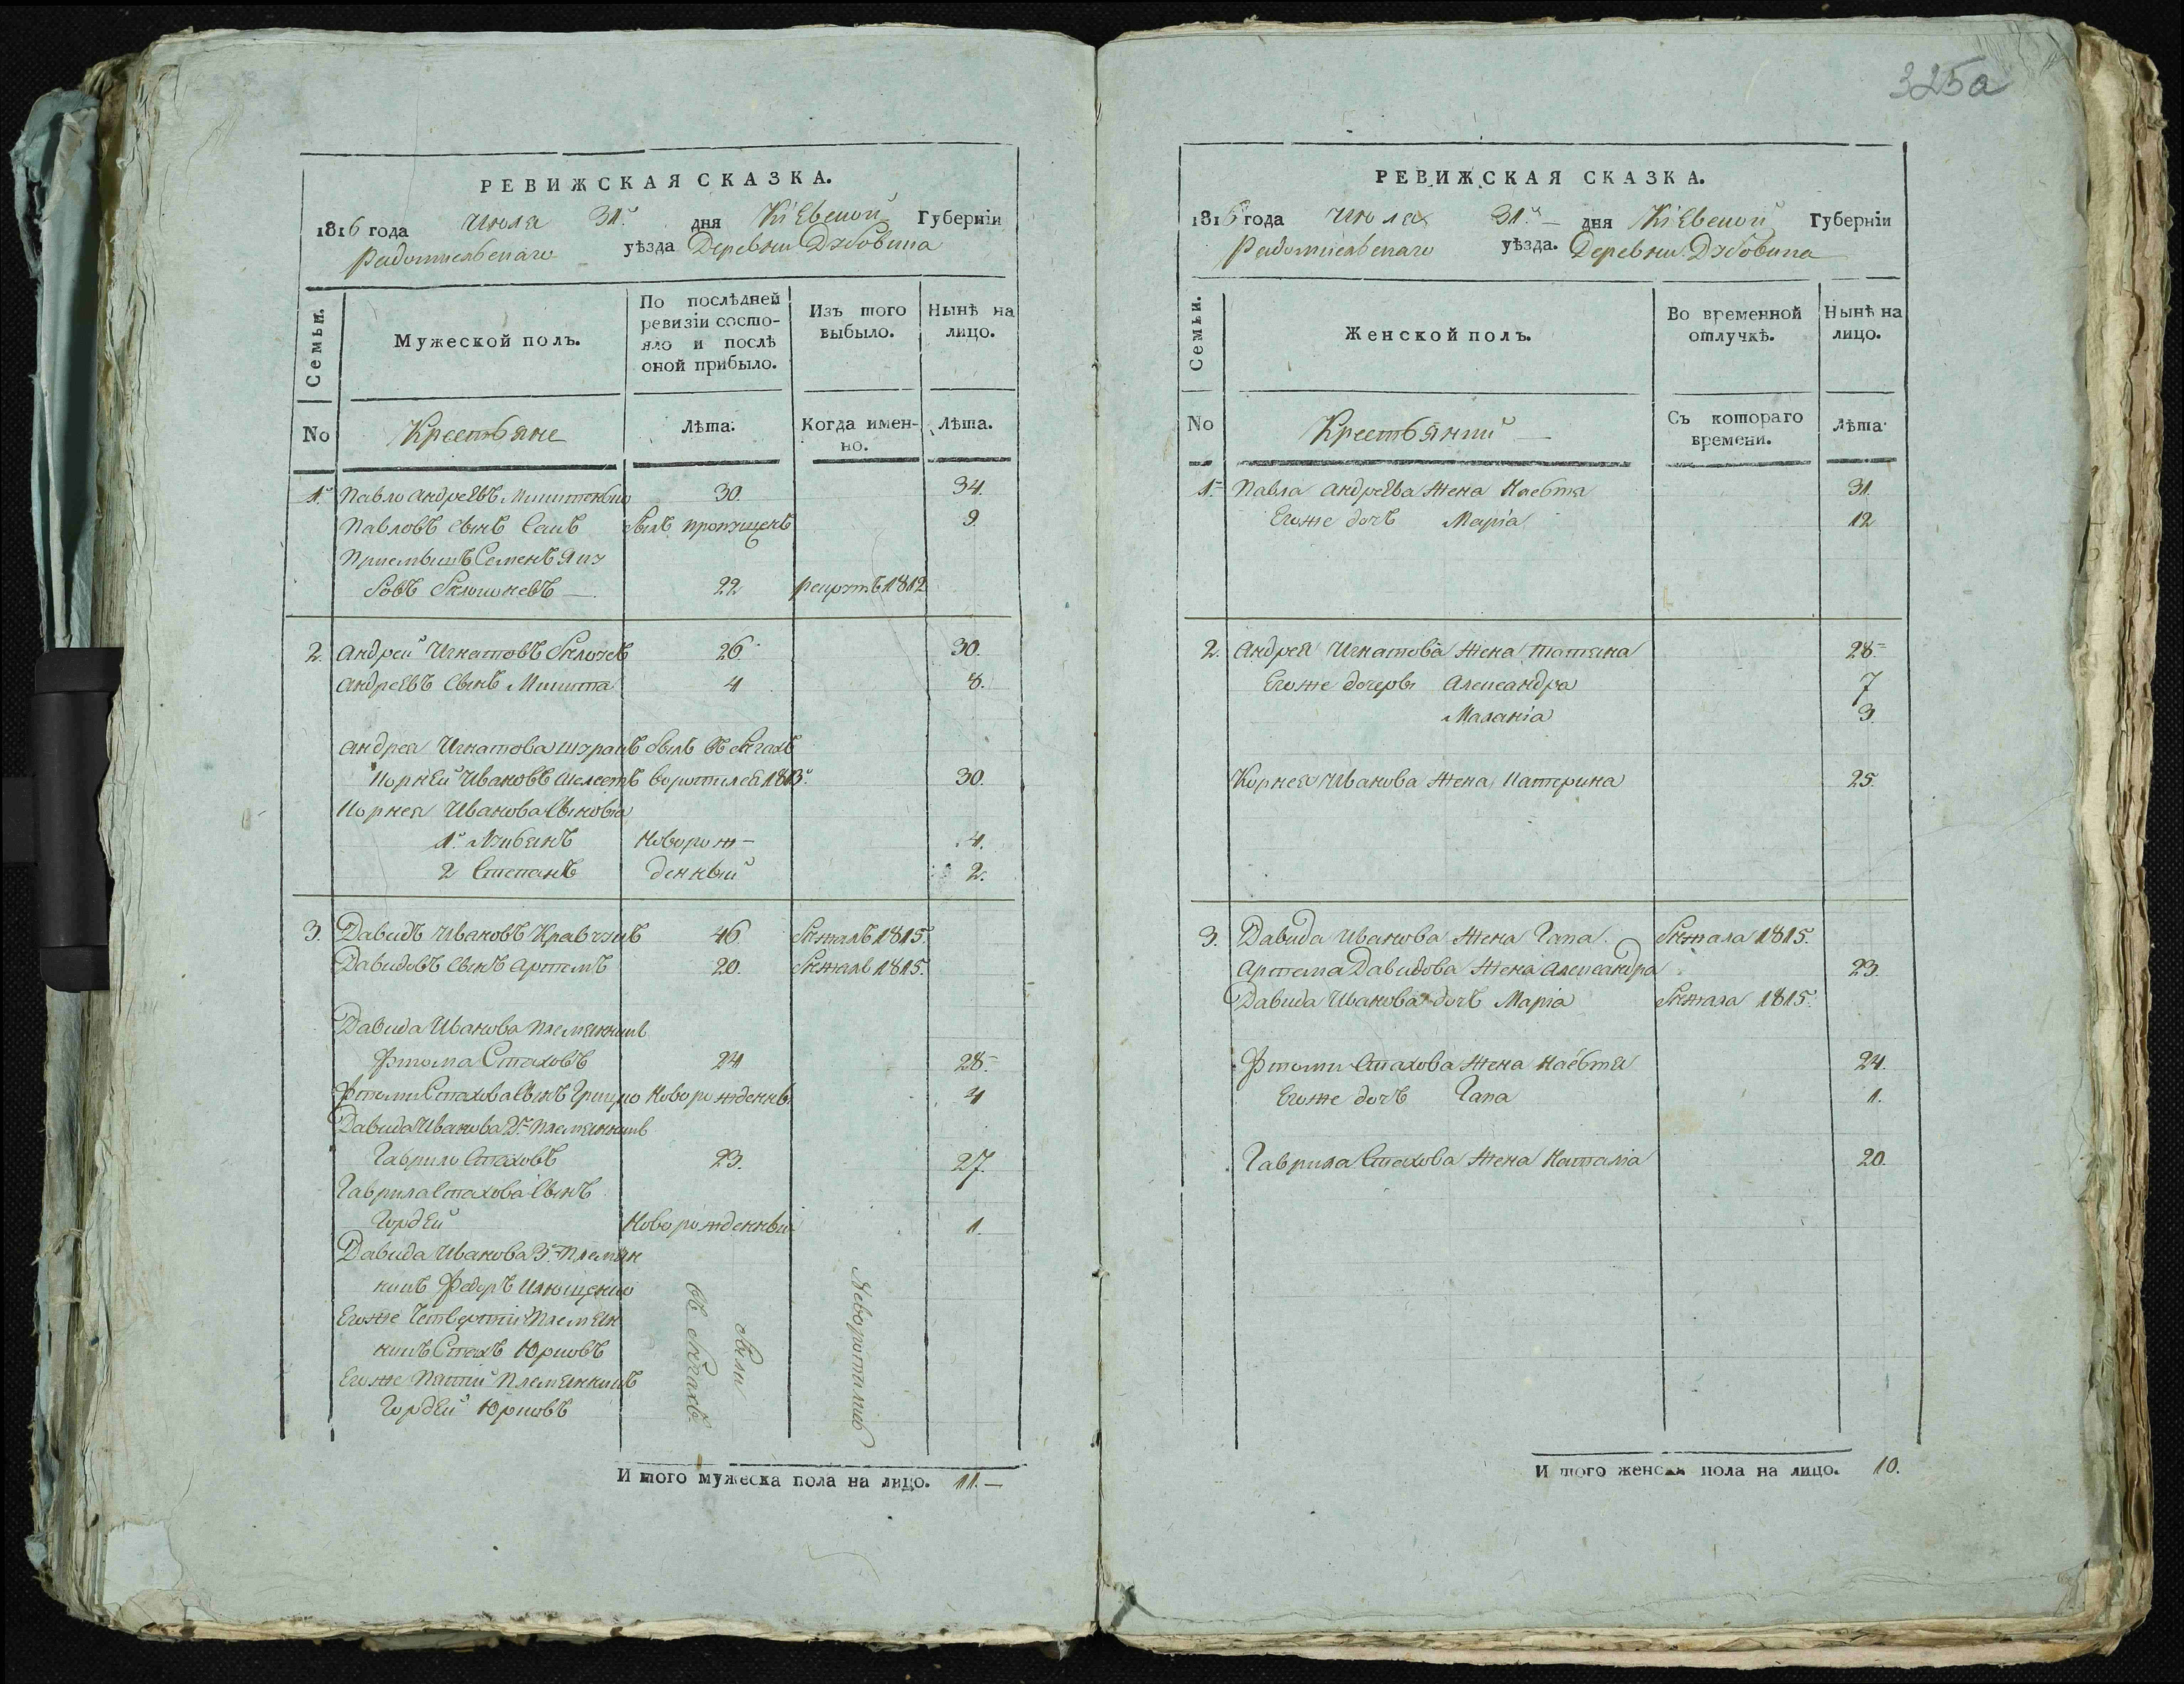 325а
РЕВИЖСКАЯ СКАЗКА.
1816 года Июля 31й дня Кіевской Губерніи
Радомисльскаго уѣзда Деревни Дубовика
Семьи.
Мужеской полъ.
По послѣдней ревизіи состояло и послѣ оной прибыло.
Изъ того выбыло.
Нынѣ на лицо.
No
Крестьяне
Лѣта.
Когда именно.
Лѣта.
1. Павло Андреевъ 30. 34.
Павловъ сынъ Сакъ былъ пропущенъ 9.
Приемышъ Семенъ Яку
бовъ 22 рекрутъ 1812
2. Андрей Игнатовъ 26 30.
Андреевъ сынъ Микита 4 8.
Андрея Игнатова шуринъ былъ въ бегахъ
Корней Ивановъ Шелестъ воротился 1813. 30.
Корнея Иванова сыновіа
1й новорож- 4.
2 Степанъ денный 2.
3. Давидъ Ивановъ Кравчукъ 46 бежалъ 1815.
Давидовъ сынъ Артемъ 20. бежалъ 1815.
Давида Иванова племянникъ
Фтома Стаховъ 24 28.
Фтоми Стахова сынъ Григоро новорожденны. 4
Давида Иванова 2й племянникъ
Гаврило Стаховъ 23. 27.
Гаврила Стахова сынъ
Гордей Новорожденный 1.
Давида Иванова 3й племян
никъ Федоръ
Егоже четвертій племян
никъ Стахъ Юрковъ
Егоже пятій племянникъ
Гордей Юрковъ
были
въ бегахъ
Неворотились
И того мужеска пола на лицо. 11.—
РЕВИЖСКАЯ СКАЗКА.
1816 года Июля 31й дня Кіевской Губерніи
Радомисльскаго уѣзда. Деревни Дубовика
Семьи.
Женской полъ.
Во временной отлучкѣ.
Нынѣ на лицо.
No
Крестьянки
Съ котораго времени.
Лѣта.
1. Павла Андреева жена Насття 31.
Егоже дочь Маріа 12
2. Андрея Игнатова жена Татяна 28.
Егоже дочеры Александра 7
Маланіа 3.
Корнея Иванова жена Катерина 25.
3. Давида Иванова жена Гапа. бежала 1815.
Артема Давидова жена Александра 23.
Давида Иванова дочь Маріа бежала 1815.
Фтоми Стахова жена 24.
Егоже дочь Гапа 1.
Гаврила Стахова жена Наталіа 20.
И того женска пола на лицо. 10.